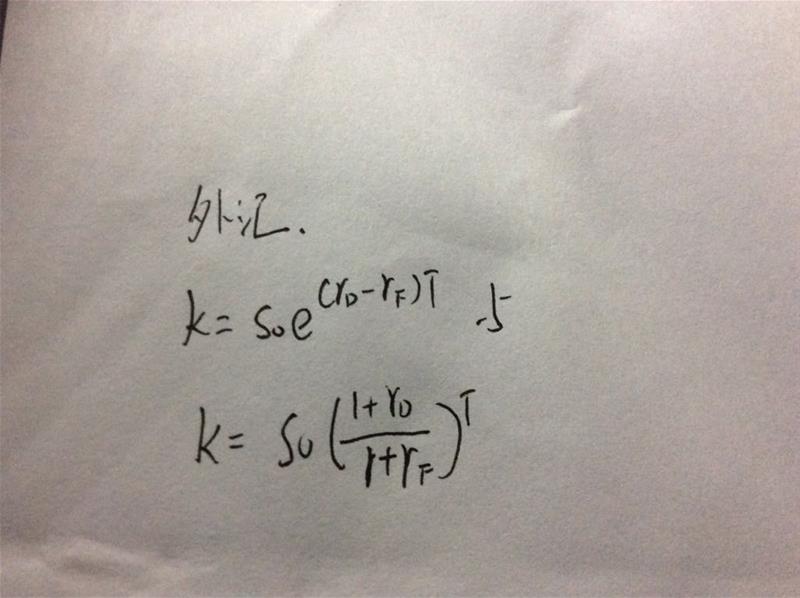 外汇.
k = S₀e^{(r_D-r_F)T} 与
k = S₀(\frac{1+r_D}{1+r_F})^T